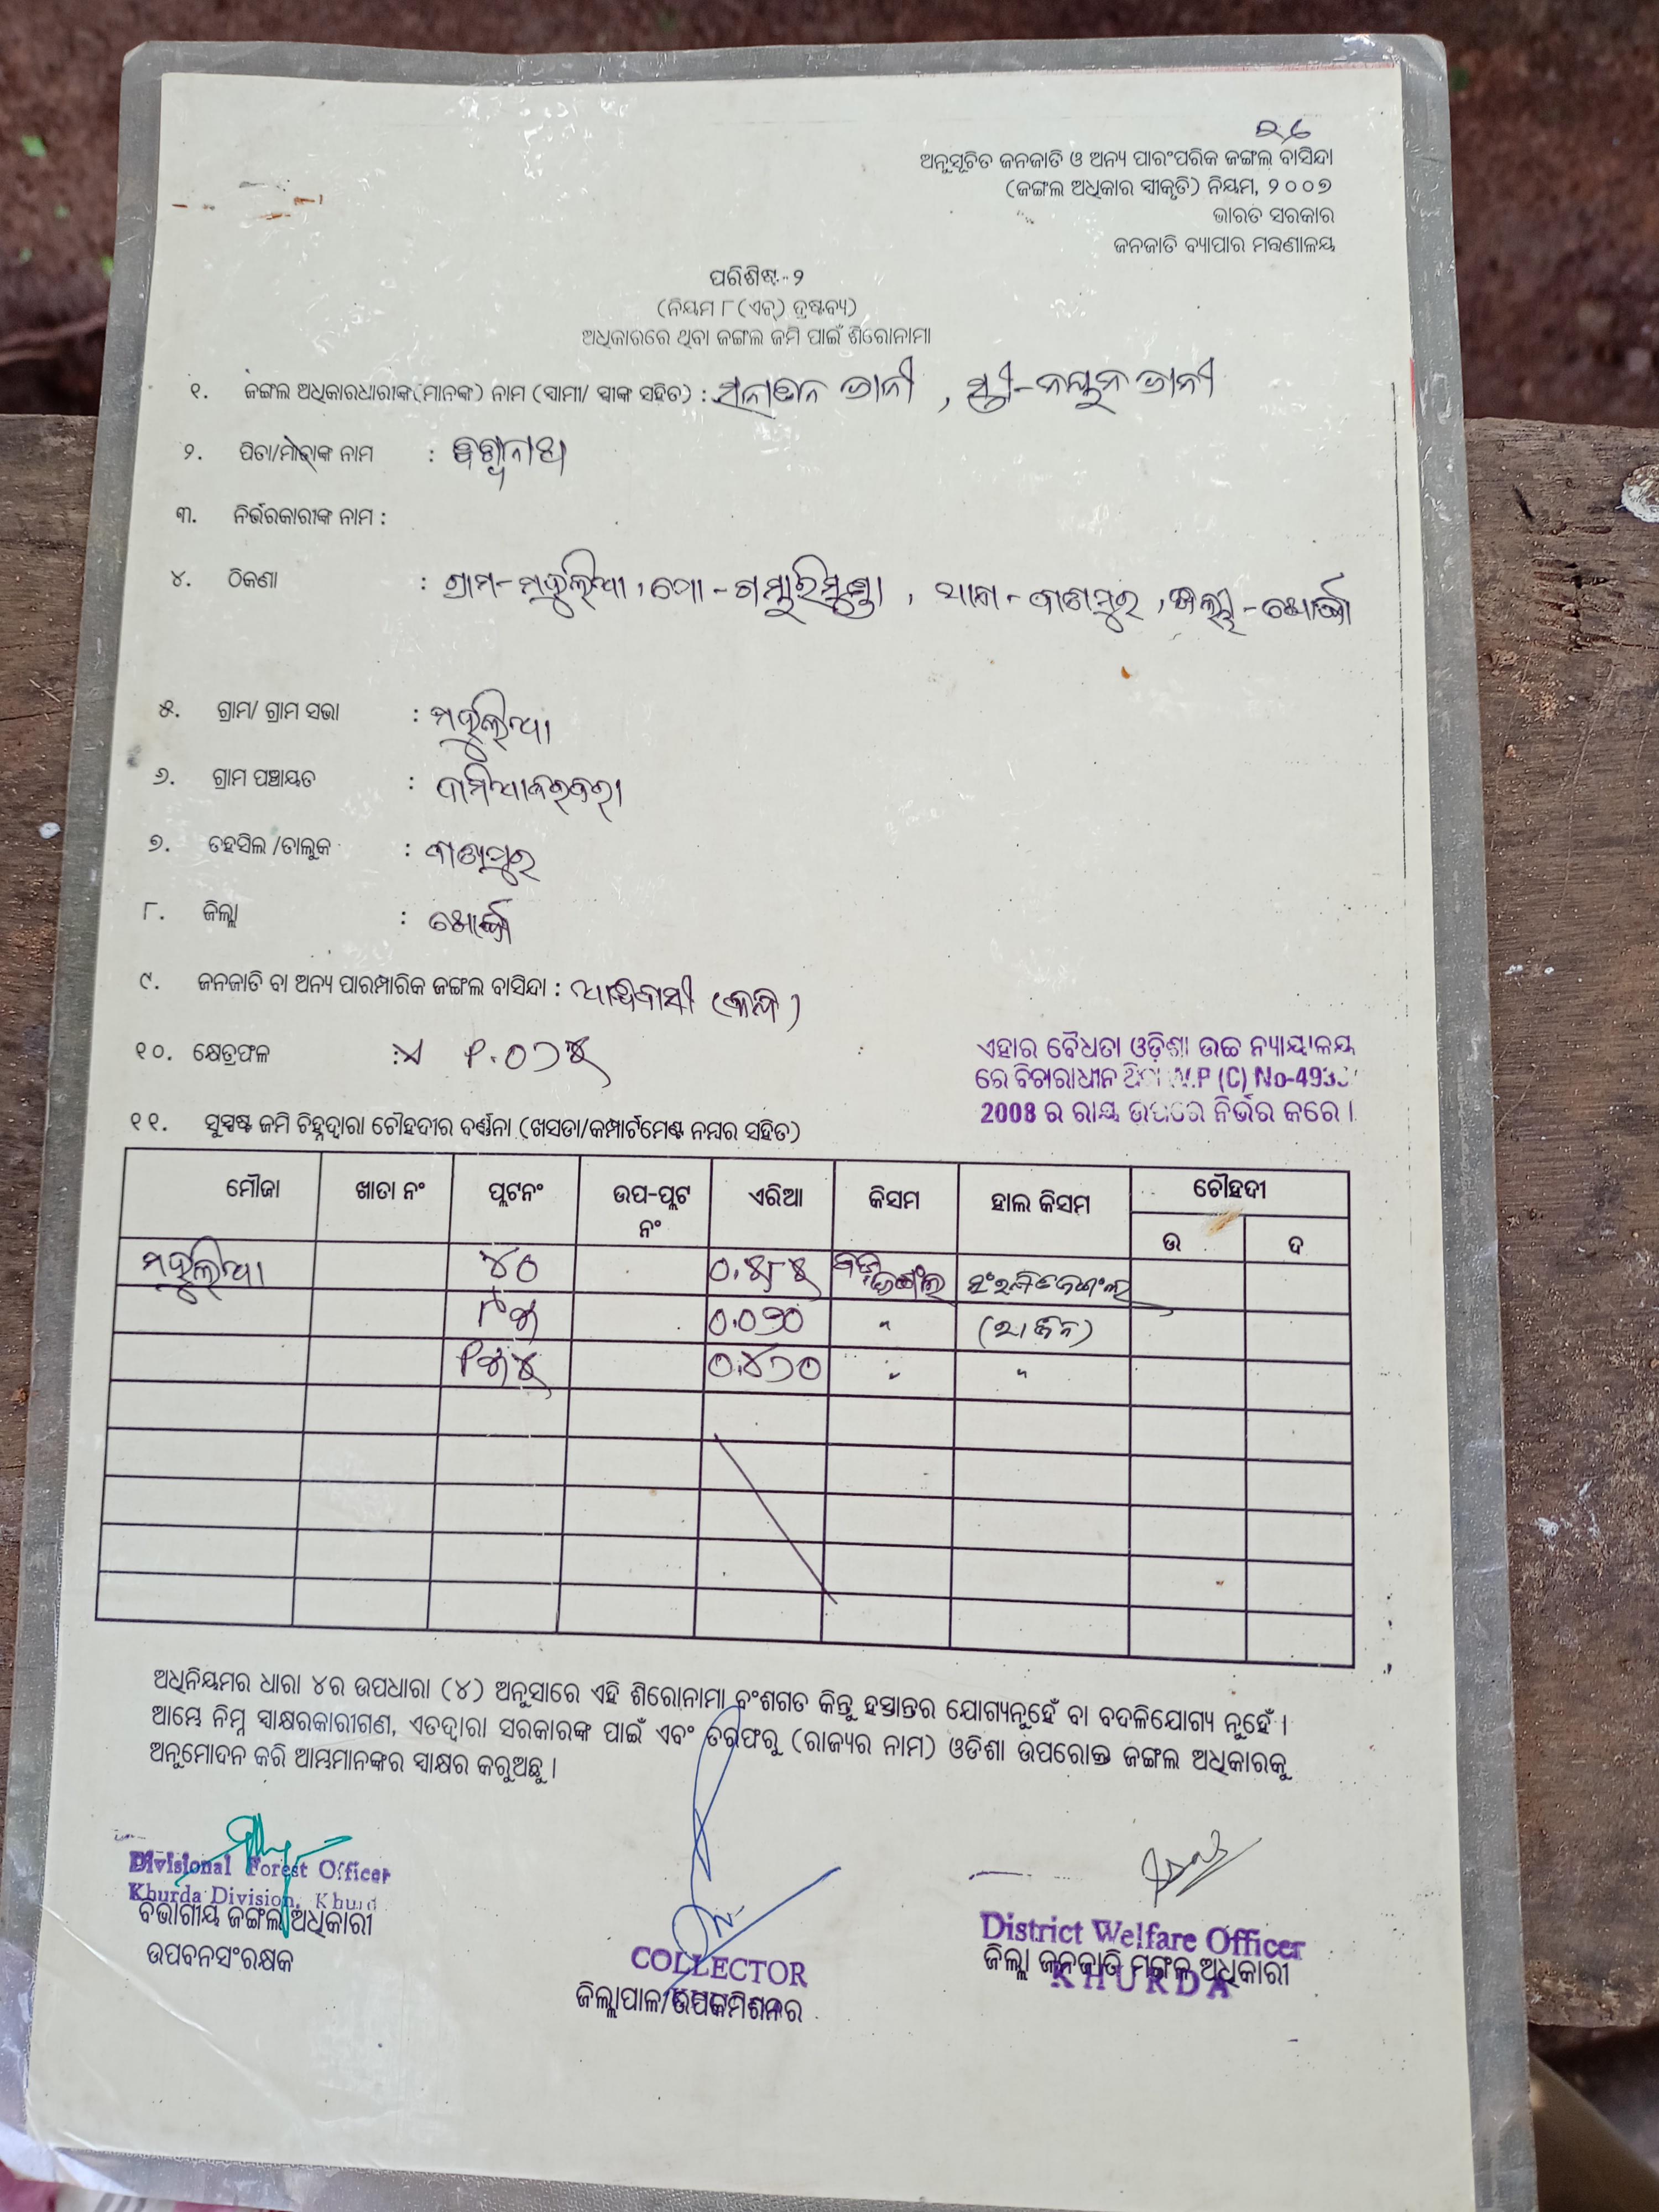 ଅନୁସୂଚିତ ଜନଜାତି ଓ ଅନ୍ୟ ପାରଂପରିକ ଜଙ୍ଗଲ ବାସିନ୍ଦା
(ଜଙ୍ଗଲ ଅଧିକାର ସ୍ୱୀକୃତି) ନିୟମ, ୨୦୦୭
ଭାରତ ସରକାର
ଜନଜାତି ବ୍ୟାପାର ମନ୍ତ୍ରଣାଳୟ
ପରିଶିଷ୍ଟ-୨
(ନିୟମ ୮(ଏଚ୍) ଦ୍ରଷ୍ଟବ୍ୟ)
ଅଧିକାରରେ ଥିବା ଜଙ୍ଗଲ ଜମି ପାଇଁ ଶିରୋନାମା
୧. ଜଙ୍ଗଲ ଅଧିକାରଧାରୀଙ୍କ(ମାନଙ୍କ) ନାମ (ସ୍ୱାମୀ/ ସ୍ତ୍ରୀଙ୍କ ସହିତ) : ସନାତନ ଭାନୀ , ସ୍ତ୍ରୀ- ଭାନୀ
୨. ପିତା/ମାତାଙ୍କ ନାମ :
୩. ନିର୍ଭରକାରୀଙ୍କ ନାମ :
୪. ଠିକଣା : ଗ୍ରାମ-ମହୁଲିଆ, ପୋ-ଗମ୍ଭାରିମୁଣ୍ଡା, ଥାନା-ବାଣପୁର, ଜିଲ୍ଲା-ଖୋର୍ଦ୍ଧା
୫. ଗ୍ରାମ/ ଗ୍ରାମ ସଭା : ମହୁଲିଆ
୬. ଗ୍ରାମ ପଞ୍ଚାୟତ :
୭. ତହସିଲ /ତାଲୁକ : ବାଣପୁର
୮. ଜିଲ୍ଲା : ଖୋର୍ଦ୍ଧା
୯. ଜନଜାତି ବା ଅନ୍ୟ ପାରମ୍ପାରିକ ଜଙ୍ଗଲ ବାସିନ୍ଦା : ଆଦିବାସୀ (କନ୍ଧ)
୧୦. କ୍ଷେତ୍ରଫଳ : ୧.୦୨୫
ଏହାର ବୈଧତା ଓଡ଼ିଶା ଉଚ୍ଚ ନ୍ୟାୟାଳୟ
ରେ ବିଚାରାଧୀନ ଥିବା W.P (C) No-493
2008 ର ରାୟ ଉପରେ ନିର୍ଭର କରେ ।
୧୧. ସୁସ୍ପଷ୍ଟ ଜମି ଚିହ୍ନଦ୍ୱାରା ଚୌହଦୀର ବର୍ଣ୍ଣନା (ଖସଡା/କମ୍ପାର୍ଟମେଣ୍ଟ ନମ୍ବର ସହିତ)
ମୌଜା ଖାତା ନଂ ପ୍ଲଟନଂ ଉପ-ପ୍ଲଟ ନଂ ଏରିଆ କିସମ ହାଲ କିସମ ଚୌହଦୀ
ଉ ଦ
ମହୁଲିଆ ୪୦ ୦.୫୮୫ ଜଙ୍ଗଲ
"
" "
ଅଧିନିୟମର ଧାରା ୪ର ଉପଧାରା (୪) ଅନୁସାରେ ଏହି ଶିରୋନାମା ବଂଶଗତ କିନ୍ତୁ ହସ୍ତାନ୍ତର ଯୋଗ୍ୟନୁହେଁ ବା ବଦଳିଯୋଗ୍ୟ ନୁହେଁ ।
ଆମ୍ଭେ ନିମ୍ନ ସ୍ୱାକ୍ଷରକାରୀଗଣ, ଏତଦ୍ୱାରା ସରକାରଙ୍କ ପାଇଁ ଏବଂ ତରଫରୁ (ରାଜ୍ୟର ନାମ) ଓଡିଶା ଉପରୋକ୍ତ ଜଙ୍ଗଲ ଅଧିକାରକୁ
ଅନୁମୋଦନ କରି ଆମ୍ଭମାନଙ୍କର ସ୍ୱାକ୍ଷର କରୁଅଛୁ ।
Divisional Forest Officer
Khurda Division, Khurd
ବିଭାଗୀୟ ଜଙ୍ଗଲ ଅଧିକାରୀ
ଉପବନସଂରକ୍ଷକ
COLLECTOR
ଜିଲ୍ଲାପାଳ/ଉପକମିଶନର
District Welfare Officer
ଜିଲ୍ଲା ଜନଜାତି ମଙ୍ଗଳ ଅଧିକାରୀ
KHURDA